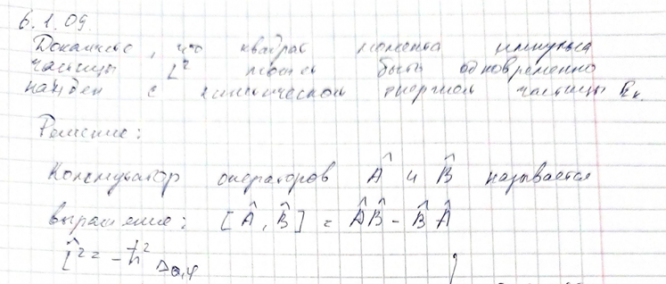 6.1.09.
Докажите, что квадрат момента импульса
частицы L² может быть одновременно
найден с кинетической энергией частицы Eк.
Решение:
Коммутатор операторов Â и B̂ называется
выражение: [Â, B̂] = ÂB̂ - B̂Â
L̂² = -ħ² Δθ,φ